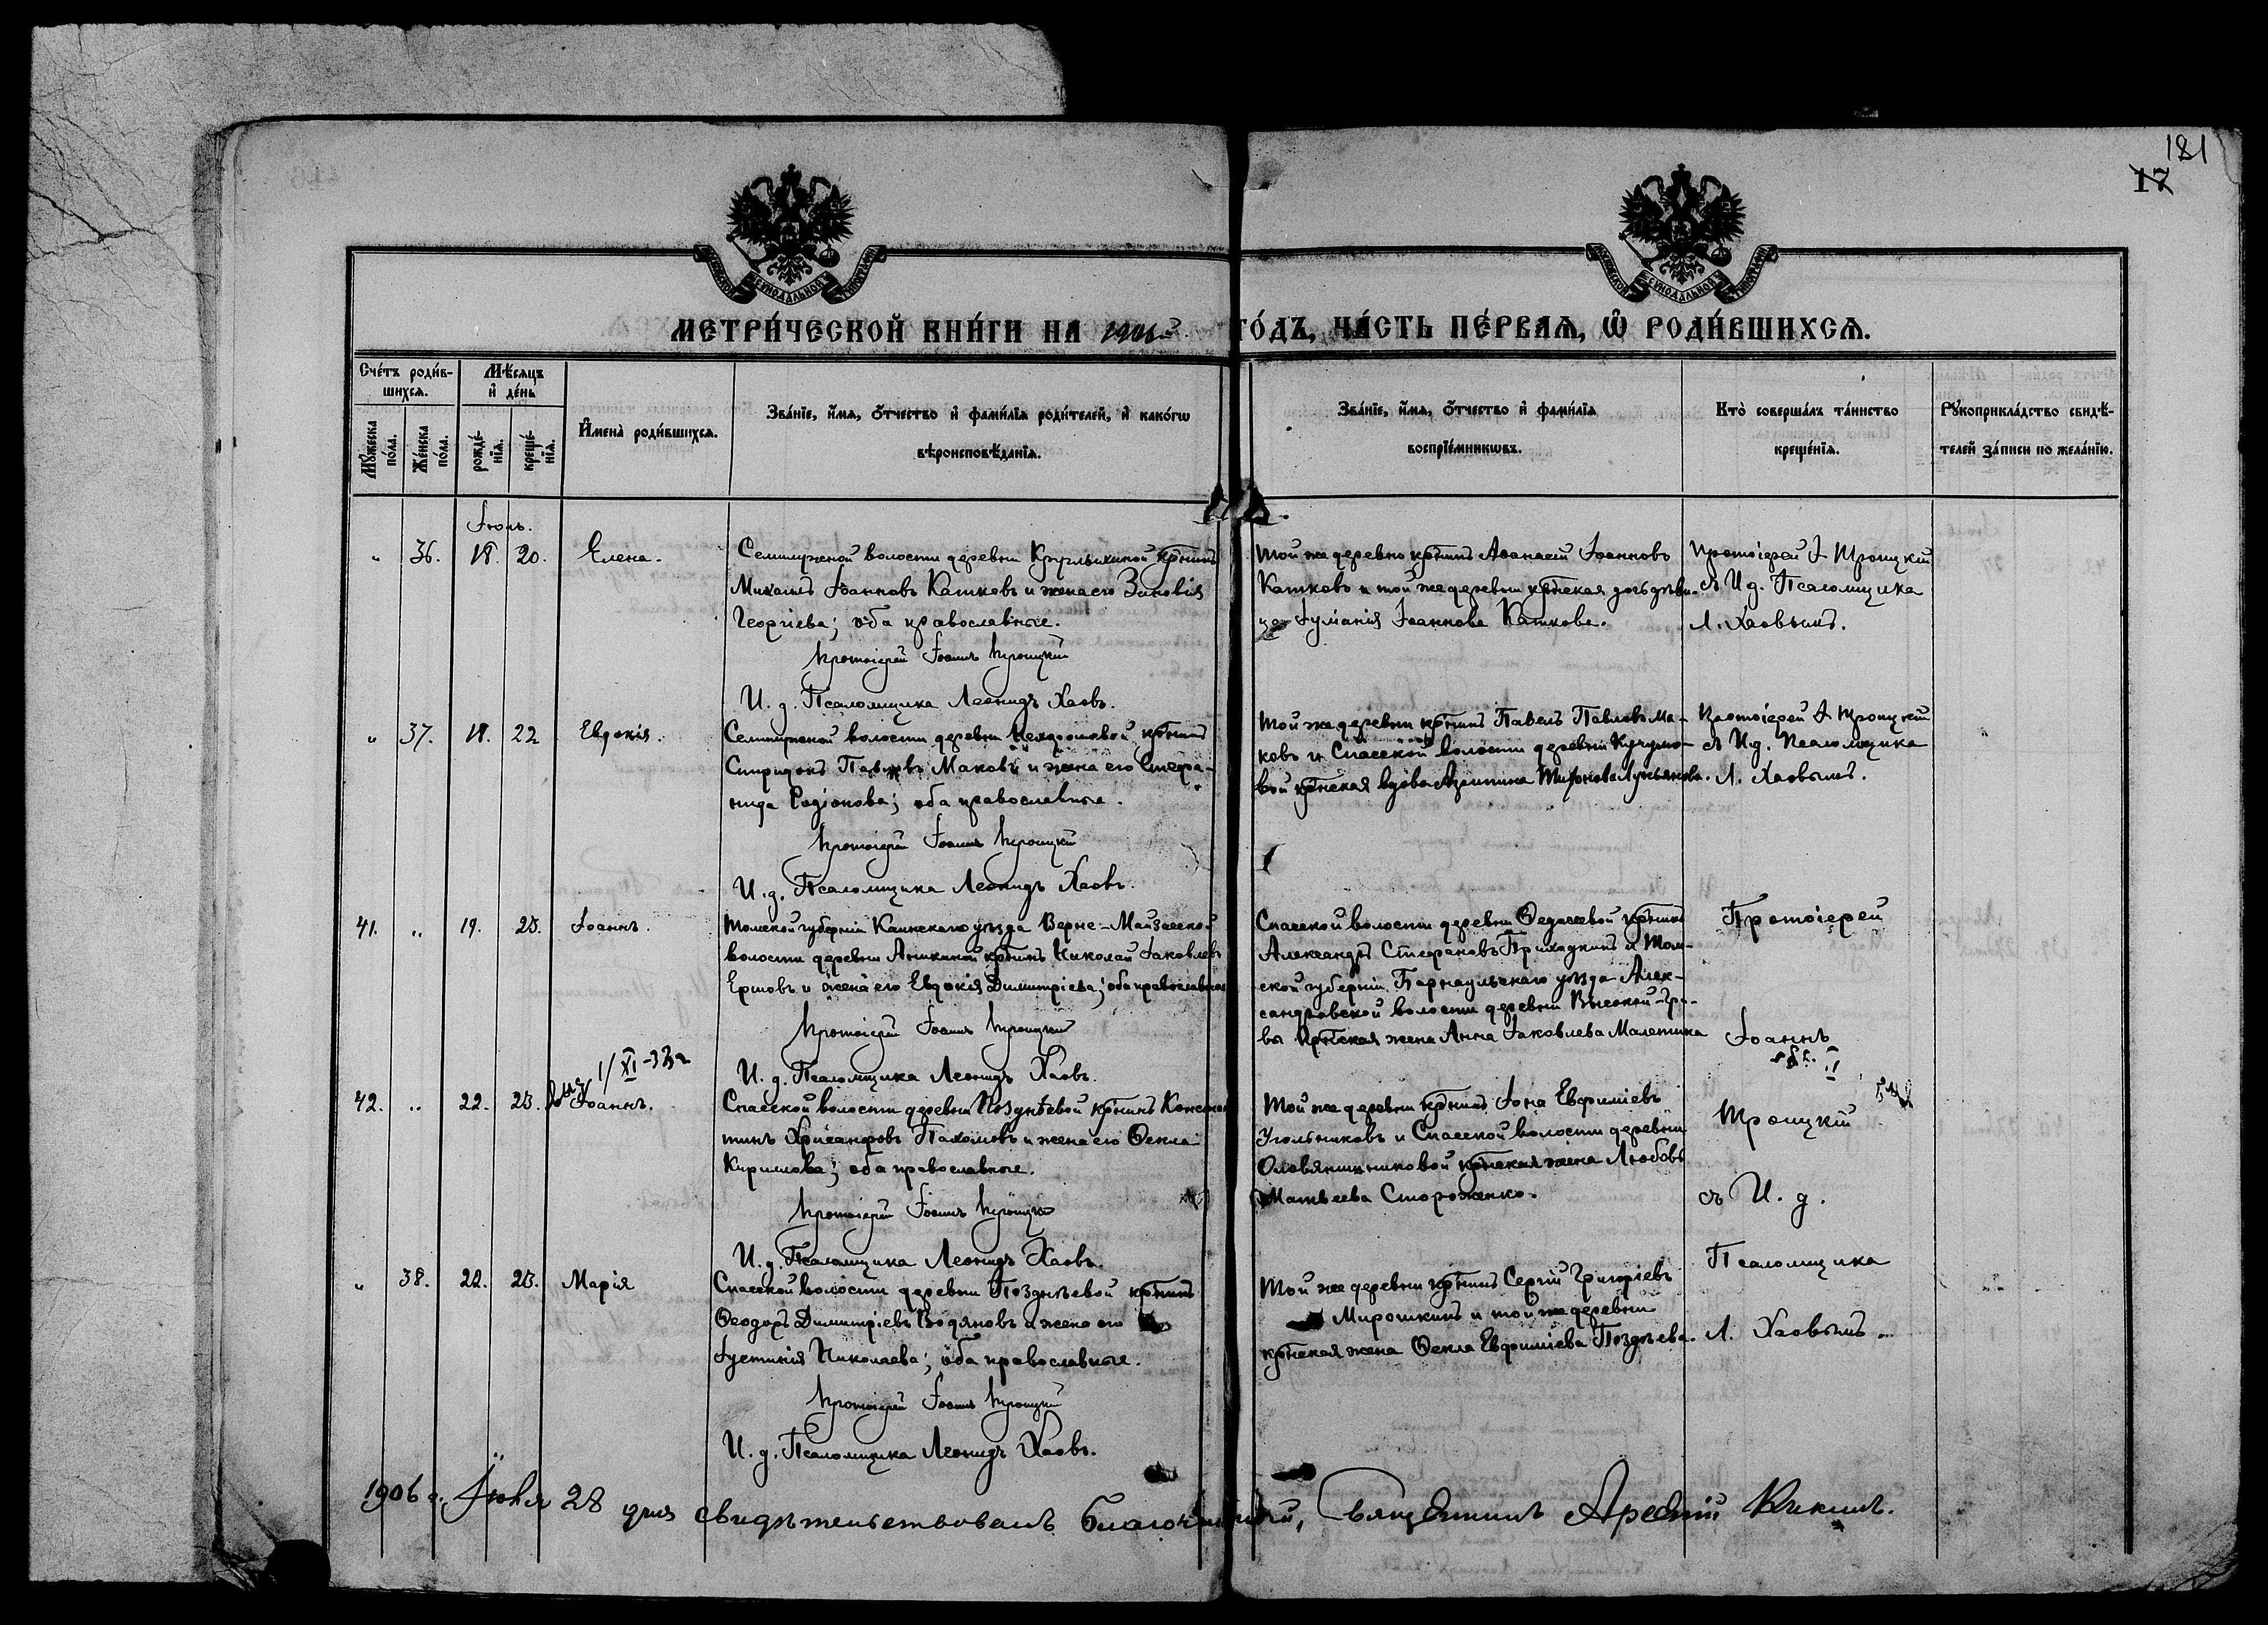 181
17
МЕТРИ́ЧЕСКОЙ КНИ́ГИ НА 1906й ГО́ДЪ, ЧА́СТЬ ПЕ́РВАѦ, Ѽ РОДИ́ВШИХСѦ.
Сче́тъ роди́в-
шихсѧ.
Мꙋ́жеска по́ла.
Же́нска по́ла.
Мѣ́сѧцъ
и҆ де́нь
рожде́-
нїѧ.
креще́-
нїѧ.
И҆мена̀ роди́вшихсѧ.
Зва́нїе, и҆́мѧ, ѻ҆́тчество и҆ фами́лїѧ роди́телей, и҆ како́гѡ
вѣроисповѣ́данїѧ.
Зва́нїе, и҆́мѧ, ѻ҆́тчество и҆ фами́лїѧ
воспрїе́мникѡвъ.
Кто̀ соверша́лъ та́инство
креще́нїѧ.
Рꙋкоприкла́дство свидѣ́-
телей за́писи по жела́нїю.
Іюль.
" 36. 18. 20. Елена.
Семилужной волости деревни крнинъ
Михаилъ Іоанновъ Кашковъ и жена его Зиновія
Георгіева; оба православные.
Протоіерей Іоаннъ Троицкій
И. д. Псаломщика Леонидъ Хаовъ.
Той же деревни крнинъ Аѳанасій Іоанновъ
Кашковъ и той же деревни крнская дочь дѣви-
ца Іуліанія Іоаннова Кашкова.
Протоіерей І. Троицкій
съ И д. Псаломщика
Л. Хаовымъ.
" 37. 18. 22 Евдокія.
Семилужной волости деревни крнинъ
Спиридонъ Павловъ Маковъ и жена его Стефа-
нида Родіонова; оба православные.
Протоіерей Іоаннъ Троицкій
И. д. Псаломщика Леонидъ Хаовъ.
Той же деревни крнинъ Павелъ Павловъ Ма-
ковъ и Спасской волости деревни
вой крнская вдова Лукьянова.
Протоіерей І. Троицкій
съ И д. Псаломщика
Л. Хаовымъ.
41. " 19. 23. Іоаннъ.
Томской губерніи Каинскаго уѣзда Верне-Майзасской
волости деревни Аникиной крнинъ Николай Іаковлевъ
Ершовъ и жена его Евдокія Димитріева; оба православные
Протоіерей Іоаннъ Троицкій
И. д. Псаломщика Леонидъ Хаовъ.
Спасской волости деревни Ѳедосеевой крнинъ
Александръ Стефановъ Приходкинъ и Том-
ской губерніи Барнаульскаго уѣзда Алек-
сандровской волости деревни Высокой-Гри-
вы крнская жена Анна Іаковлева Малетина
Протоіерей
Іоаннъ
1/XI-33г
42. " 22. 23. Іоаннъ.
Спасской волости деревни Позднѣевой крнинъ Констан-
тинъ Хрисанфовъ Пахомовъ и жена его Ѳекла
Кирилова; оба православные.
Протоіерей Іоаннъ Троицкій
И. д. Псаломщика Леонидъ Хаовъ.
Той же деревни крнинъ Іона Евфиміевъ
Угольниковъ и Спасской волости деревни
Оловянишниковой крнская жена Любовь
Матвеева Стороженко.
Троицкій
съ И. д.
" 38. 22. 23. Марія
Спасской волости деревни Позднѣевой крнинъ
Ѳеодоръ Димитріевъ Водяновъ и жена его
Іустинія Николаева; оба православные.
Протоіерей Іоаннъ Троицкій
И. д. Псаломщика Леонидъ Хаовъ.
Той же деревни крнинъ Сергій Григоріевъ
Мирошкинъ и той же деревни
крнская жена Ѳекла Евфиміева Позднѣева.
Псаломщика
Л. Хаовымъ.
1906 г. Іюля 28 дня свидѣтельствовалъ благочинный, Священникъ Арсеній Кикинъ.